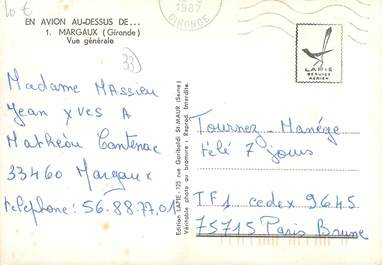 10 €
EN AVION AU-DESSUS DE...
1. MARGAUX (Gironde)
Vue générale
1987
GIRONDE
33
LAPIE
SERVICE
AERIEN
Madame MAssieu
Jean YVES A
Mathéou Cantenac
33460 Margaux
telephone: 56.88.77.01
Edition LAPIE - 125 rue Garibaldi St-MAUR (Seine)
Véritable photo au bromure : Reprod. Interdite.
Tournez - Manège
télé 7 jours
TF1 cedex 9645
75715 Paris Brune